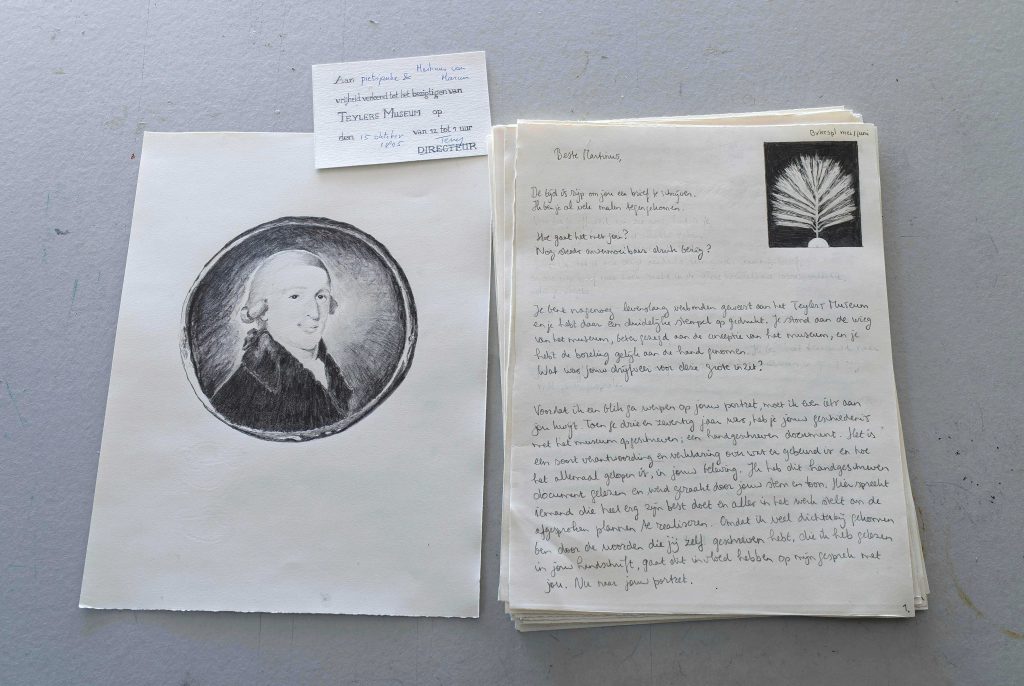 Aan pietsjanke & Martinus van Marum
vrijheid verleend tot het bezigtigen van
TEYLERS MUSEUM op
den 15 oktober van 12 tot 1 uur
1805
DIRECTEUR
mei/juni
Beste Martinus,
De tijd is rijp om jou een brief te schrijven.
Ik ben je al vele malen tegengekomen.
Hoe gaat het met jou?
Nog steeds onvermoeibaar druk bezig?
Je bent nagenoeg levenslang verbonden geweest aan het Teylers Museum
en je hebt daar een duidelijke stempel op gedrukt. Je stond aan de wieg
van het museum, beter gezegd aan de conceptie van het museum, en je
hebt de boreling gelijk aan de hand genomen.
Wat was jouw drijfveer voor deze grote inzet?
Voordat ik een blik ga werpen op jouw portret, moet ik even iets aan
jou kwijt. Toen je drie en zeventig jaar was, heb je jouw geschiedenis
met het museum opgeschreven; een handgeschreven document. Het is
een soort verantwoording en verklaring over wat er gebeurd is en hoe
het allemaal gelopen is, in jouw beleving. Ik heb dit handgeschreven
document gelezen en werd geraakt door jouw stem en toon. Hier spreekt
iemand die heel erg zijn best doet en alles in het werk stelt om de
afgesproken plannen te realiseren. Omdat ik veel dichterbij gekomen
ben door de woorden die jij zelf geschreven hebt, die ik heb gelezen
in jouw handschrift, gaat dit invloed hebben op mijn gesprek met
jou. Nu naar jouw portret.
1.